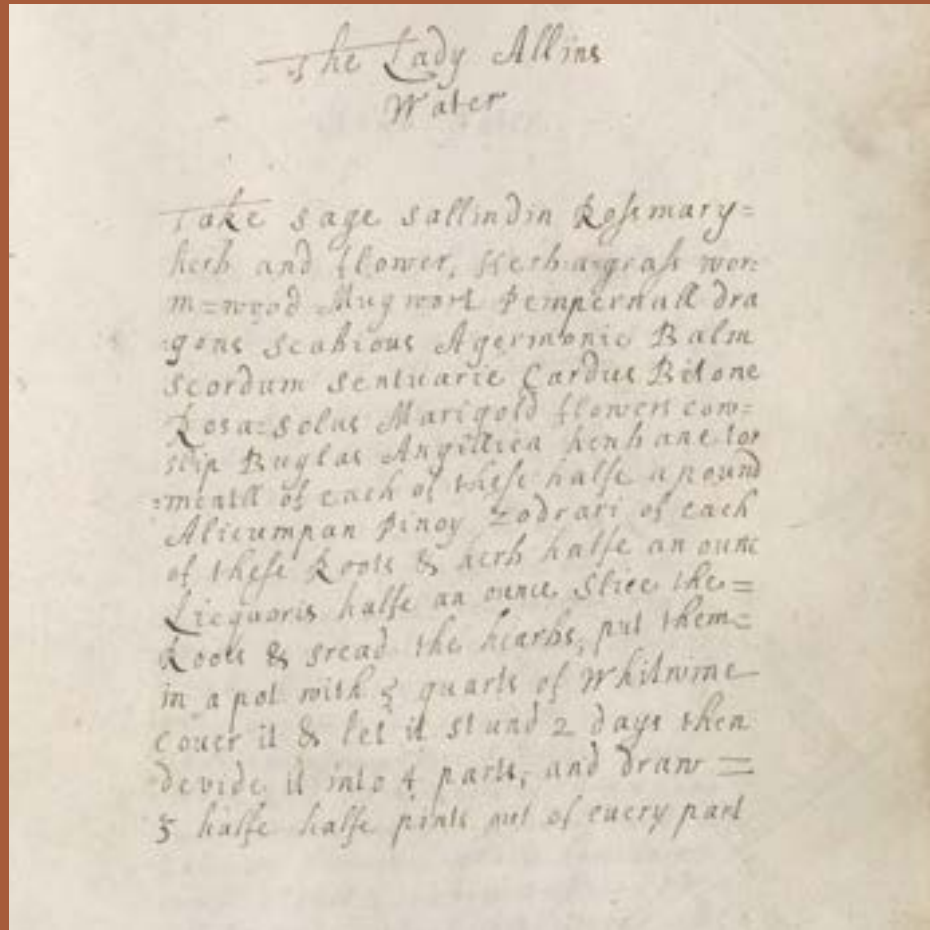 The Lady Allins
Water
Take sage sallindin Rosemary=
herb and flower, Herb-a-grass wor=
m=wood Mugwort Pempernall dra
=gons scabious Agermonie Balm
scordum sentuarie Cardus Bitone
Rosa=solus Marigold flowers cow=
slip Buglas Angillica henbane tor
=mentll of each of these halfe a pound
Alicumpan Pinoy Zodrari of each
of these Roots & herb halfe an ounc
Licquoris halfe an ounce Slice the=
Roots & sread the hearbs, put them=
in a pot with 5 quarts of Whitwine
Couer it & let it stand 2 days then
devide it into 4 parts, and draw =
3 halfe halfe pints out of euery part